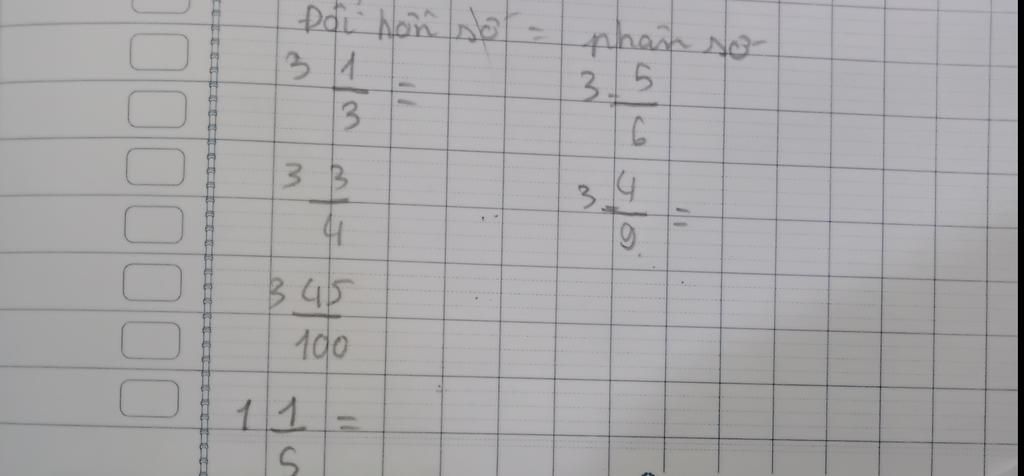 Đổi hỗn số = phân số
3 1/3 =
3 5/6
3 3/4
3 4/9 =
3 45/100
1 1/5 =